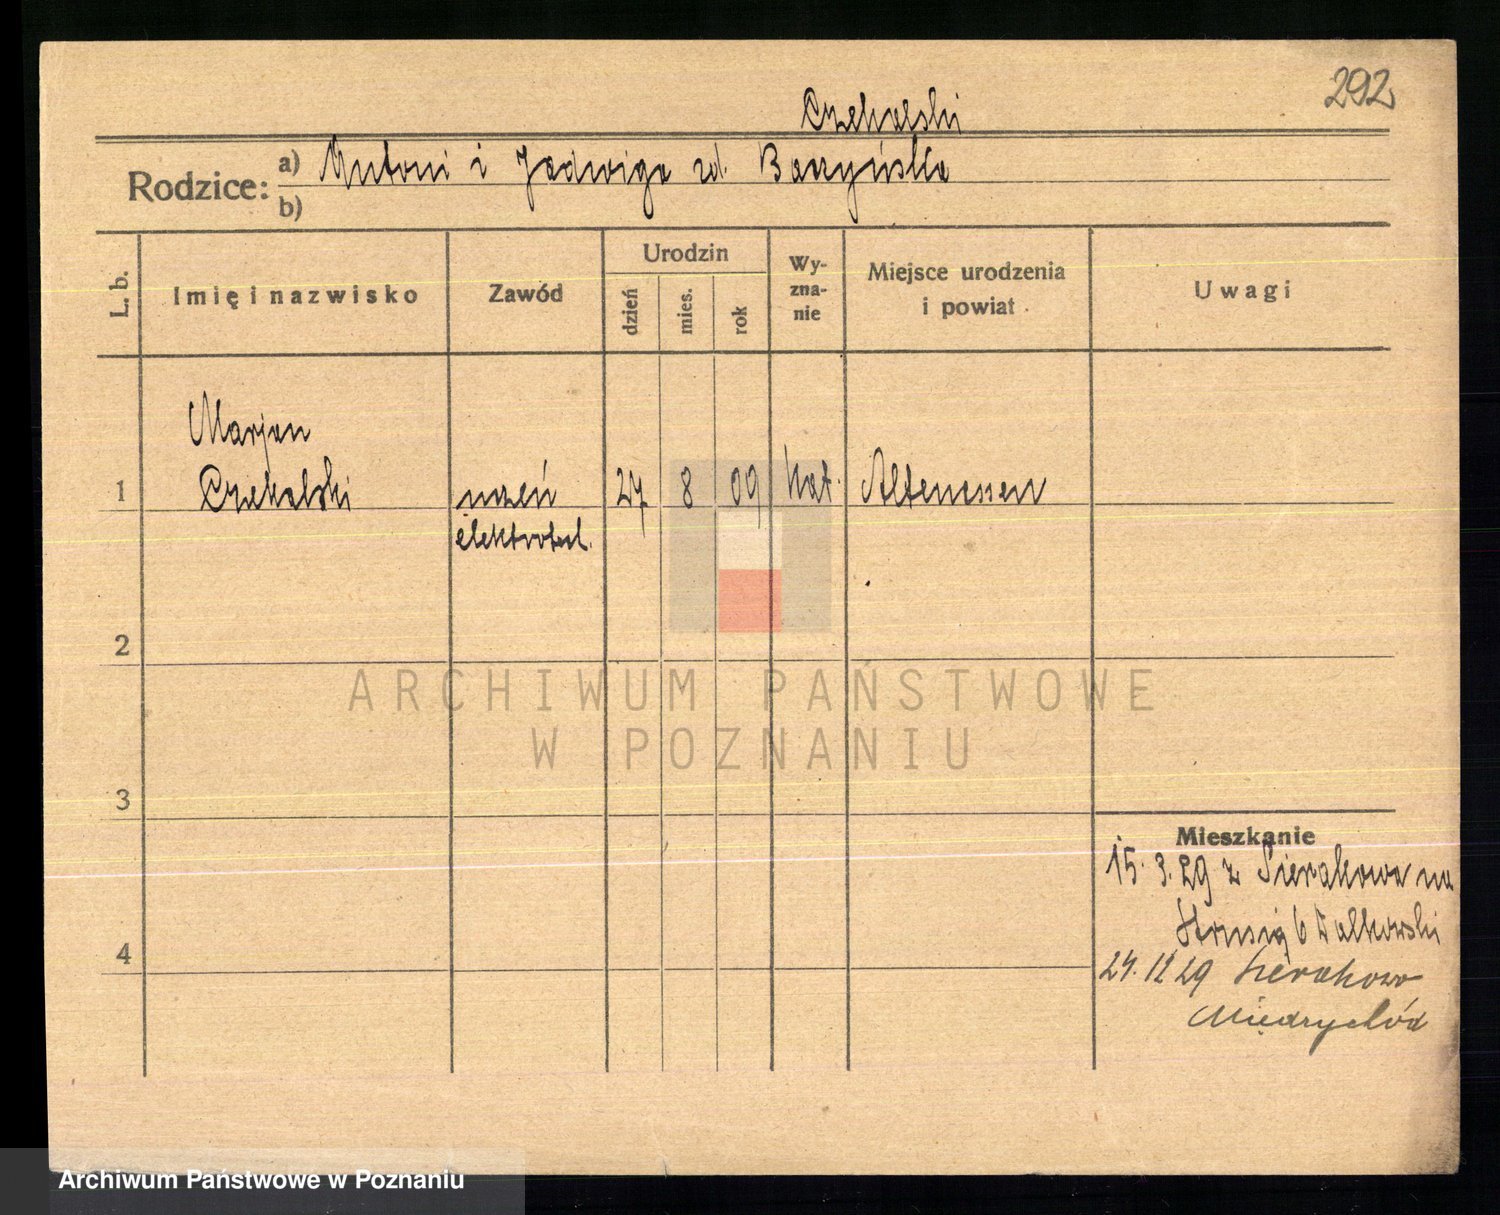 292
Czekalski
Rodzice: a) Antoni i Jadwiga zd. Baczyńska
b)
L. b. Imię i nazwisko Zawód Urodzin dzień mies. rok Wy-zna-nie Miejsce urodzenia i powiat Uwagi
Marjan
1 Czekalski uczeń 27 8 09 kat. Altenessen
elektrotech.
2
ARCHIWUM PAŃSTWOWE
W POZNANIU
3
Mieszkanie
15. 3. 29 z Sierakowa na
Strusia 6 Walkowski
4
24. 12 29 Sierakowo
Międzychód
Archiwum Państwowe w Poznaniu